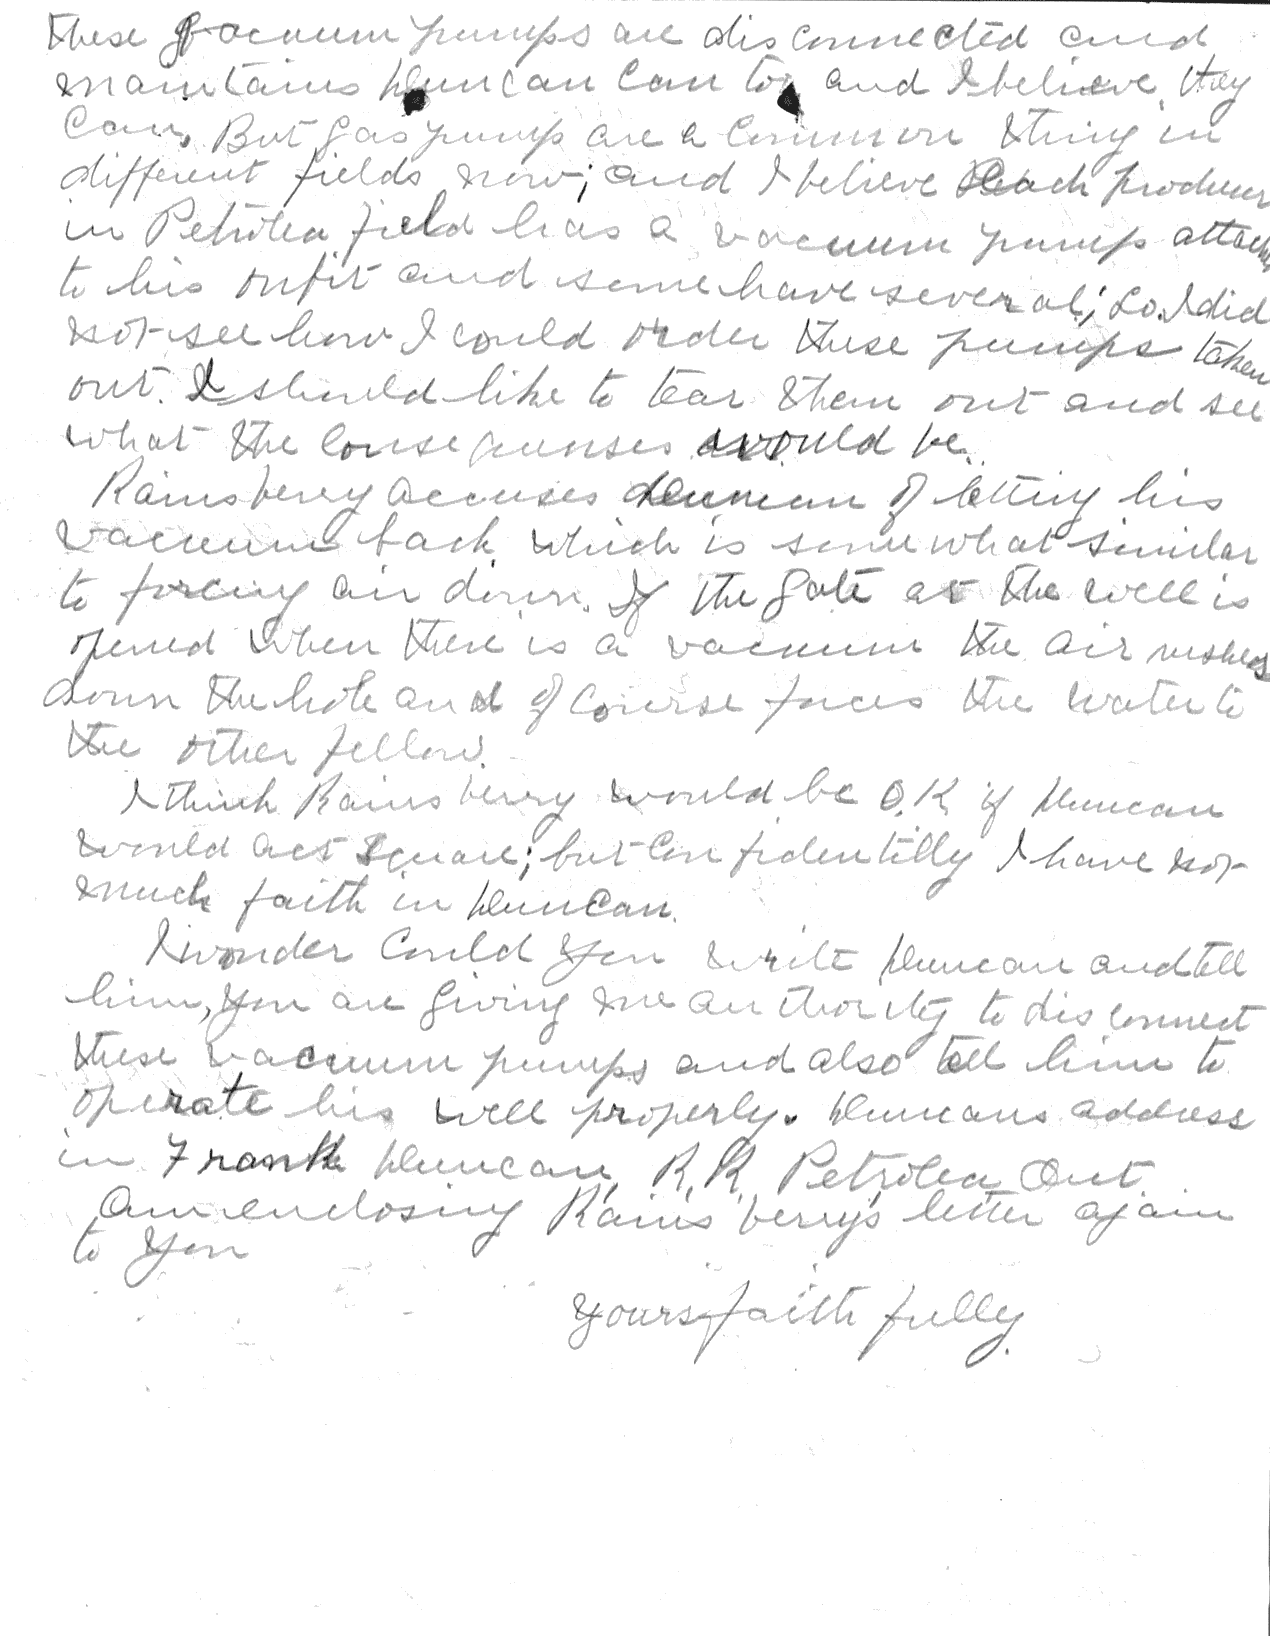 these vacuum pumps are disconnected and
maintains Duncan can to, and I believe they
can, But gas pumps are a common thing in
different fields now; and I believe each producer
in Petrolea field has a vacuum pump attached
to his outfit and some have several; So I did
not see how I could order these pumps taken
out. I should like to tear them out and see
what the consequenses would be.
Rainsberry accuses Duncan of letting his
vacuum back which is somewhat similar
to forcing air down. If the gate at the well is
opened when there is a vacuum the air rushes
down the hole and of course forces the water to
the other fellow.
I think Rainsberry would be O.K if Duncan
would act square; but confidentilly I have not
much faith in Duncan.
I wonder could you write Duncan and tell
him, you are giving me authority to disconnect
these vacuum pumps and also tell him to
operate his well properly. Duncans address
in Frank Duncan, R.R. Petrolea, Ont
Am enclosing Rainsberry's letter again
to you
Yours faithfully.